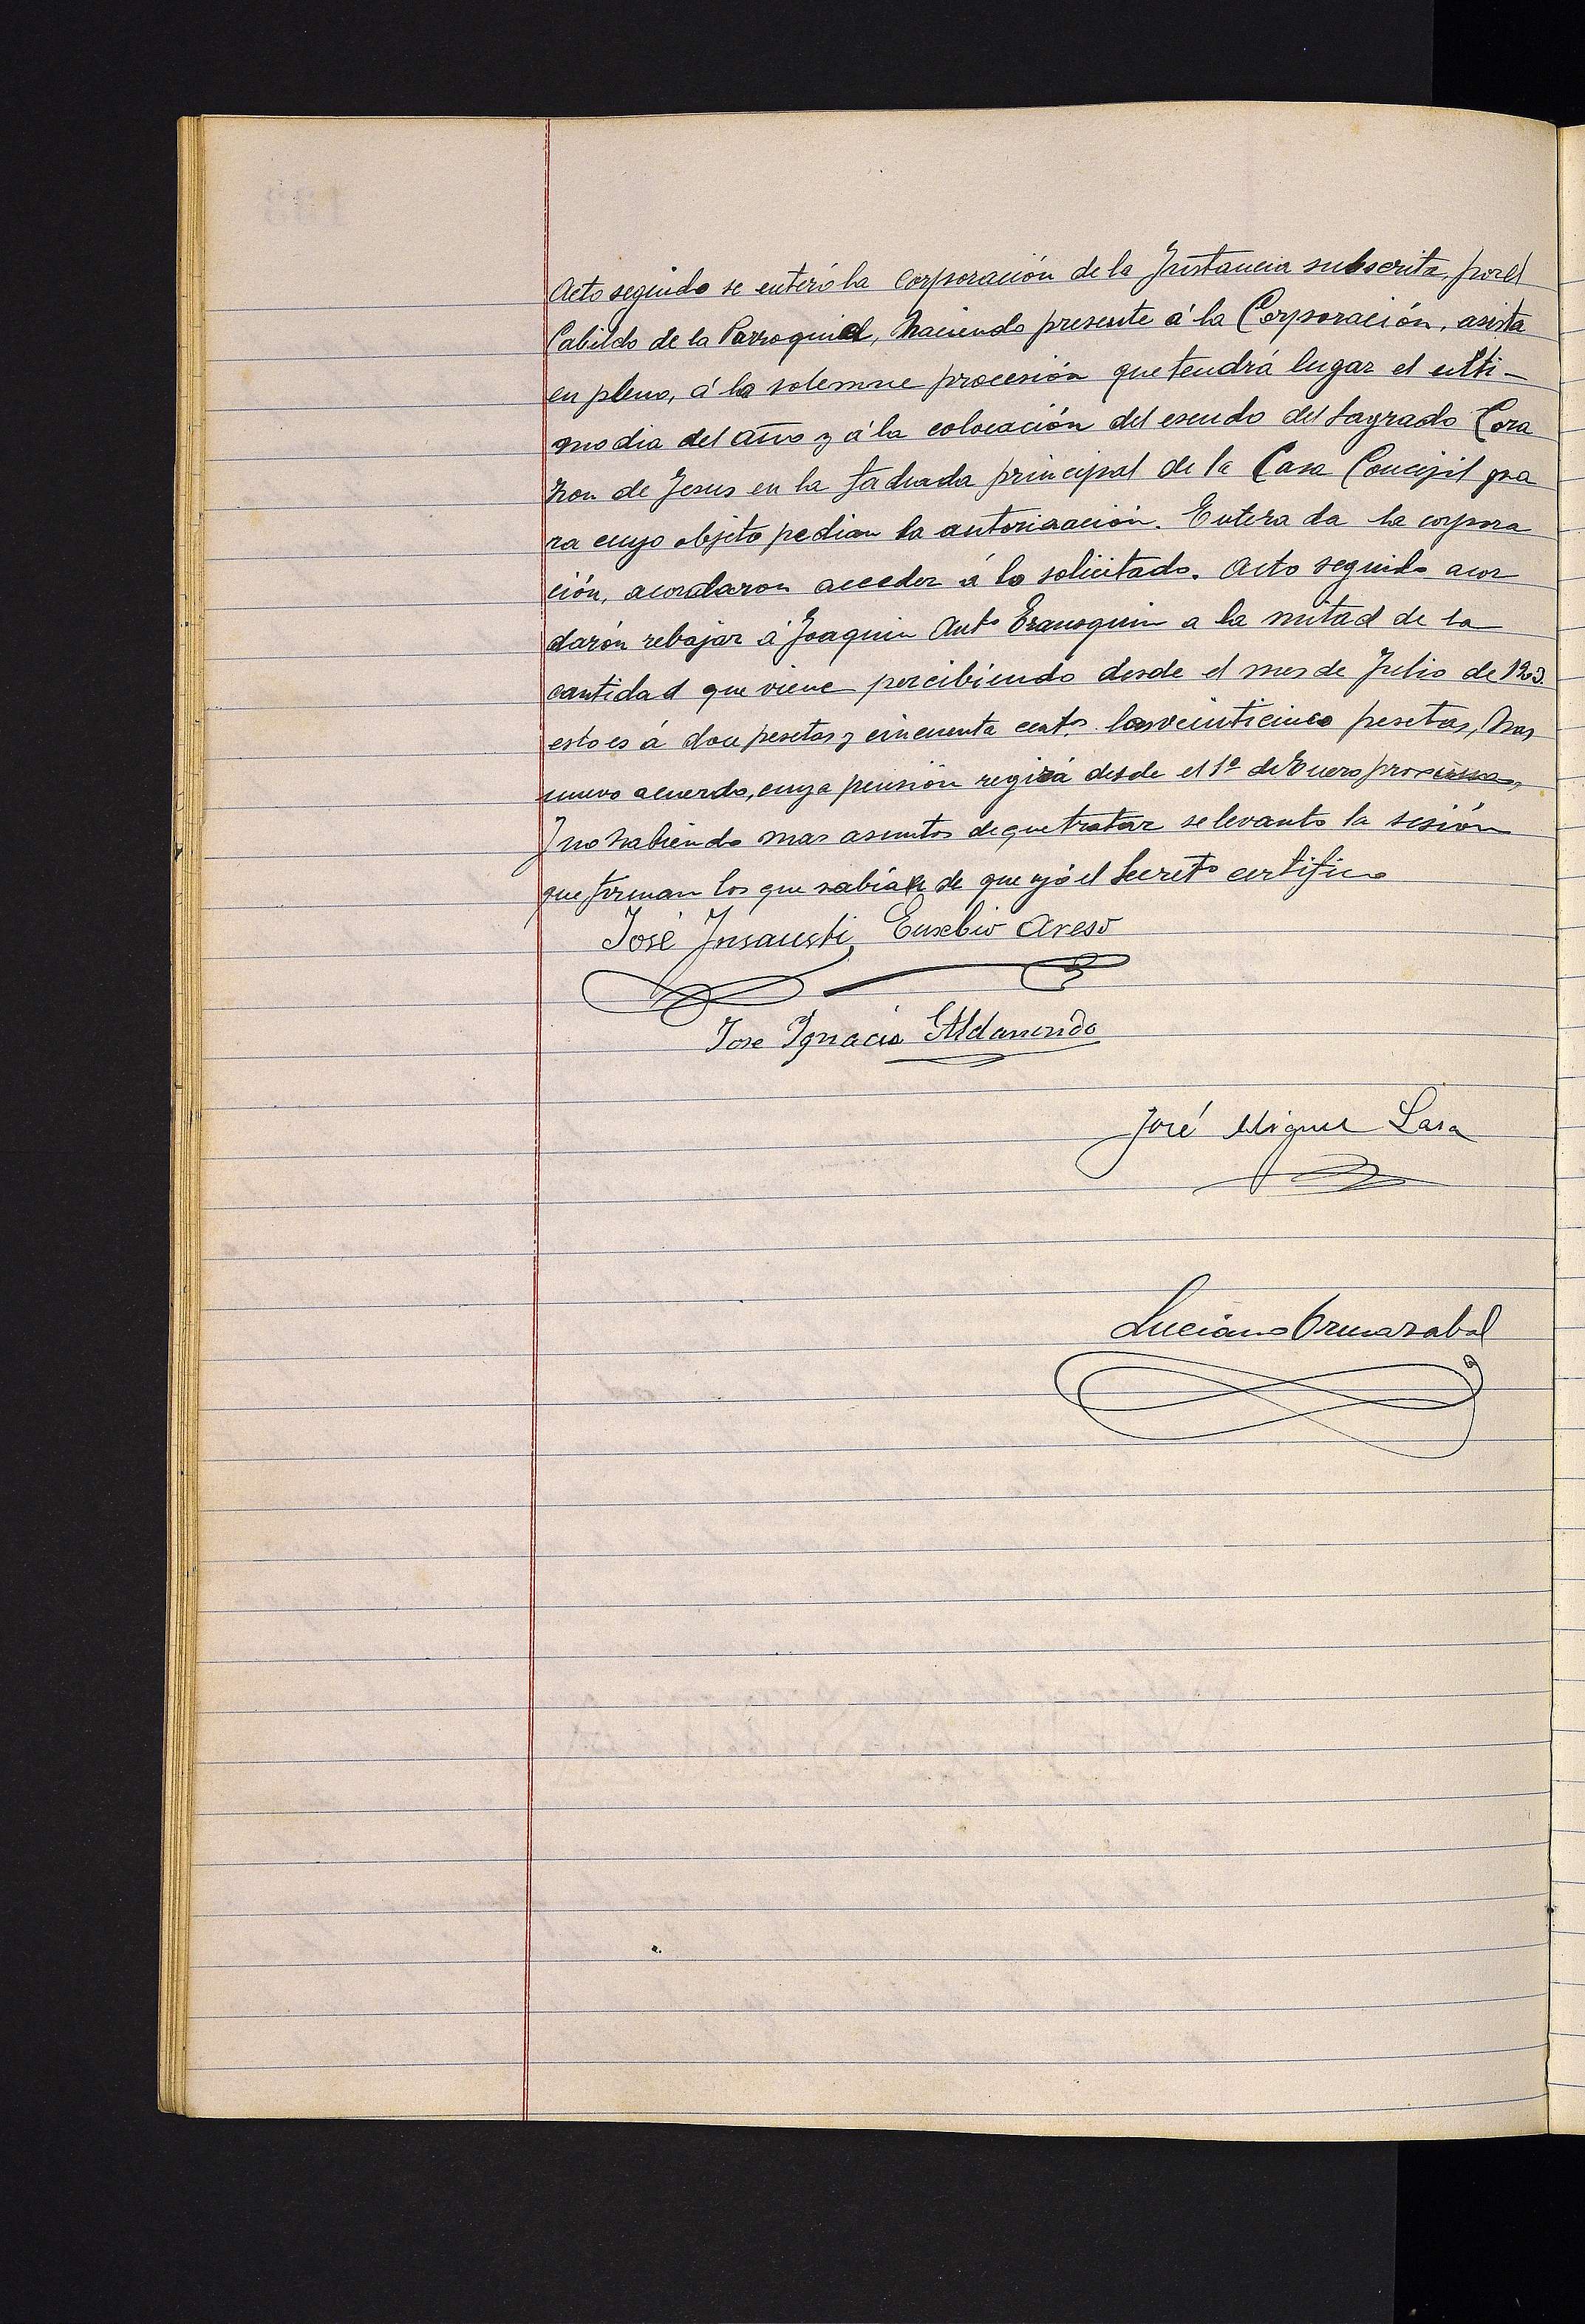 Acto seguido se enteró la Corporación de la Instancia subscrita, por el
Cabildo de la Parroquial, haciendo presente á la Corporación, asista
en pleno, á la solemne procesión que tendrá lugar el ulti-
mo dia del año y á la colocación del escudo del Sagrado Cora
zon de Jesus en la fachada principal de la Casa Concejil pa
ra cuyo objeto pedian la autorización. Enterada la corpora
ción, acordaron acceder á lo solicitado. Acto seguido acor
darón rebajar á Joaquin Antº a la mitad de la
cantidad que viene percibiendo desde el mes de Julio de
esto es á doce pesetas y cincuenta centˢ las veinticinco pesetas,
nuevo acuerdo, cuya pension regirá desde el 1º de Enero proximo,
Y no habiendo mas asuntos de que tratar se levanto la sesión
que firman los que sabian de que yó el Secretº certifico
José Insausti Eusebio Areso
Jose Ignacio Aldanondo
José Miguel Lasa
Luciano Ormazabal
133